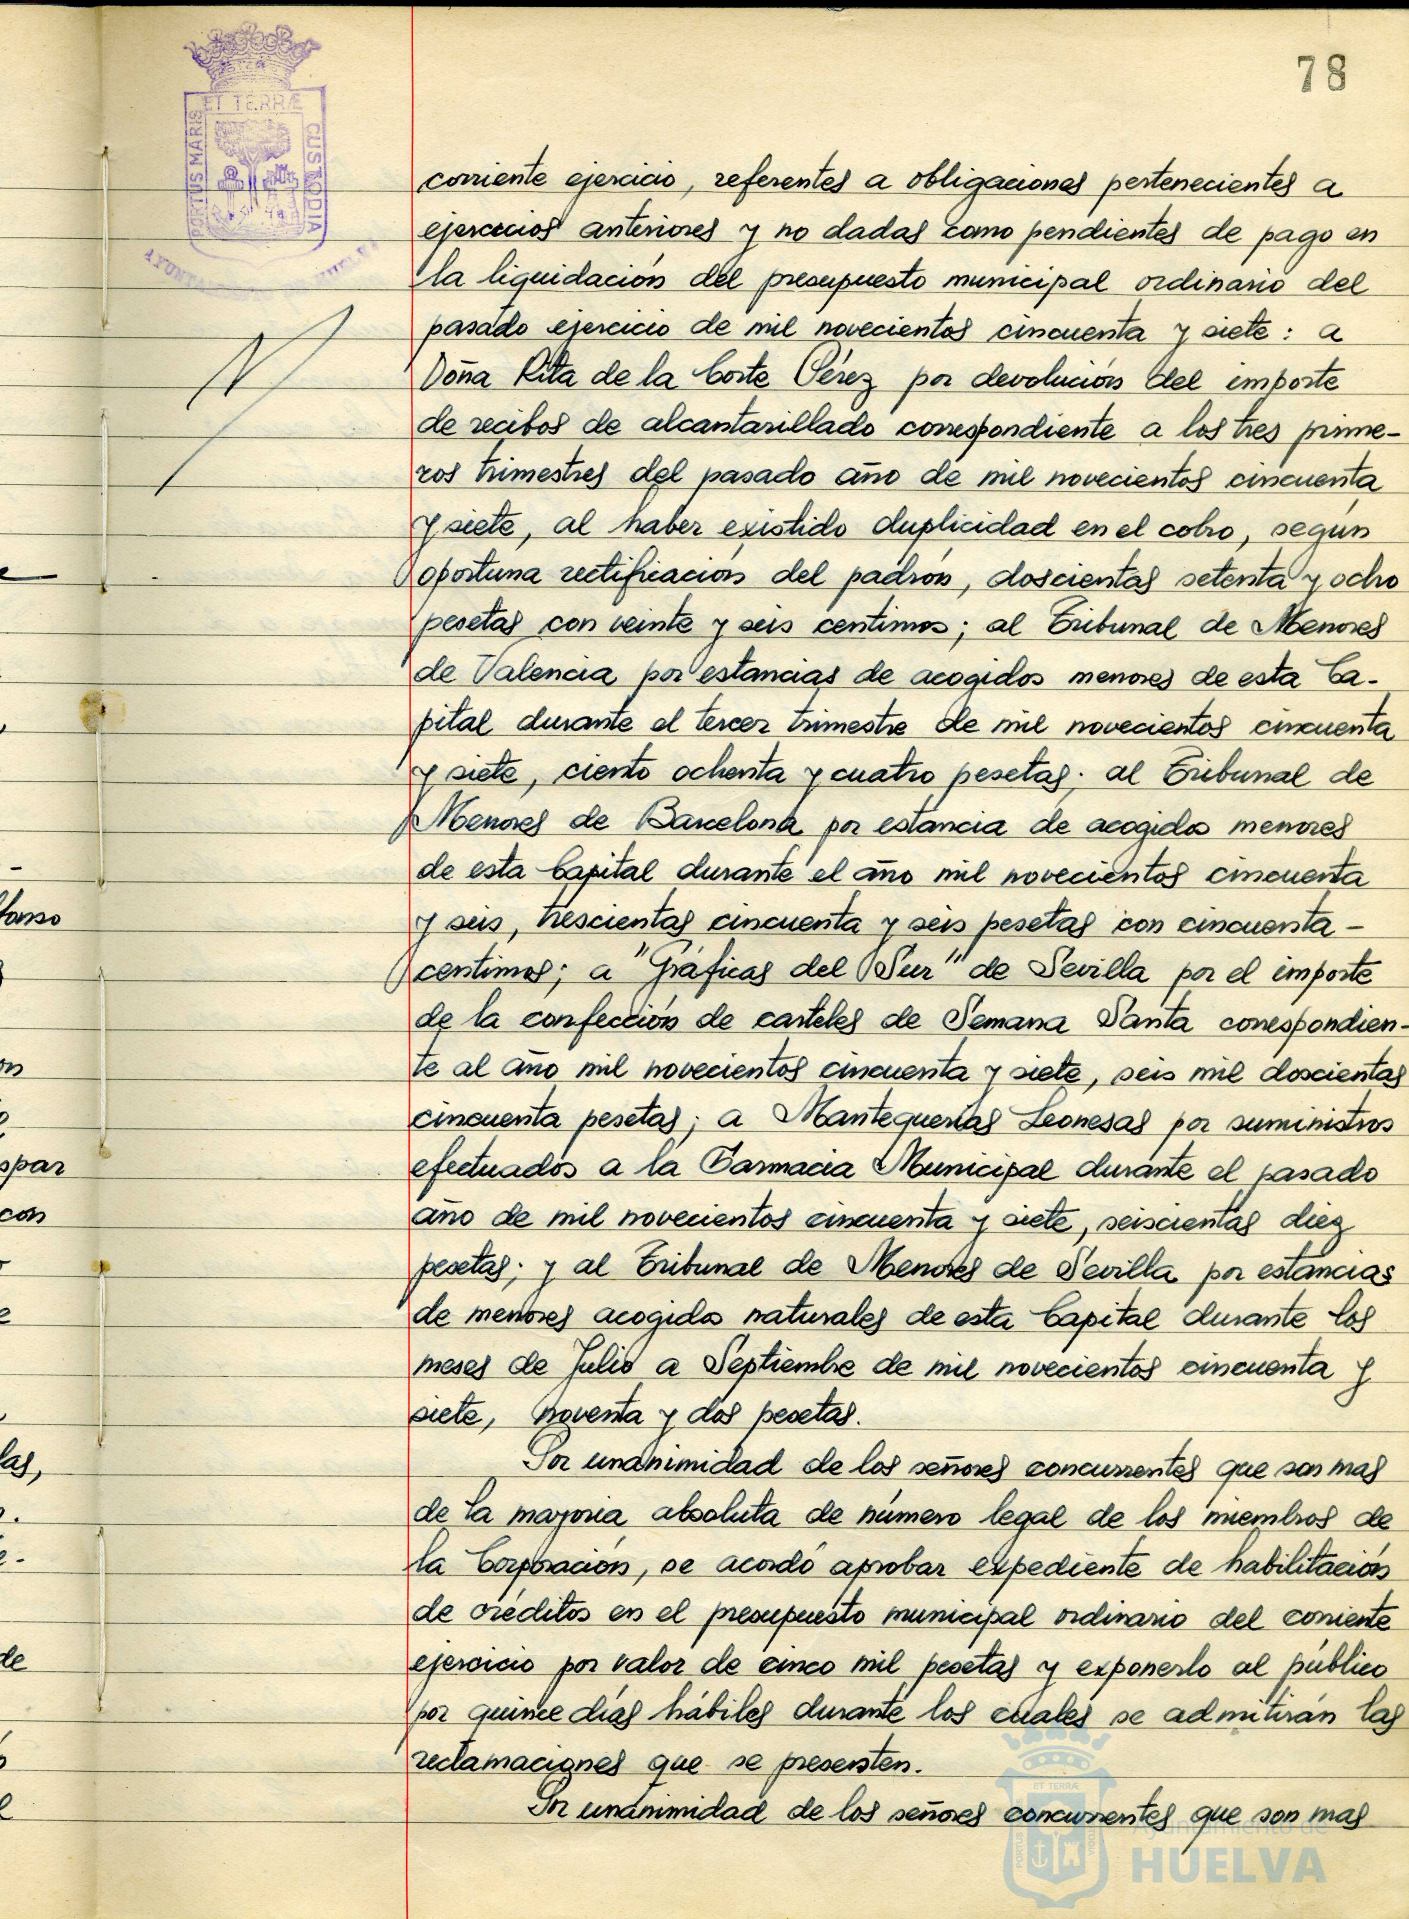 78
ET TERRÆ
PORTUS MARIS
CUSTODIA
AYUNTAMIENTO DE HUELVA
corriente ejercicio, referentes a obligaciones pertenecientes a
ejercicios anteriores y no dadas como pendientes de pago en
la liquidación del presupuesto municipal ordinario del
pasado ejercicio de mil novecientos cincuenta y siete: a
Doña Rita de la Corte Pérez por devolución del importe
de recibos de alcantarillado correspondiente a los tres prime-
ros trimestres del pasado año de mil novecientos cincuenta
y siete, al haber existido duplicidad en el cobro, según
oportuna rectificación del padrón, doscientas setenta y ocho
pesetas con veinte y seis centimos; al Tribunal de Menores
de Valencia por estancias de acogidos menores de esta Ca-
pital durante el tercer trimestre de mil novecientos cincuenta
y siete, ciento ochenta y cuatro pesetas; al Tribunal de
Menores de Barcelona por estancia de acogidos menores
de esta Capital durante el año mil novecientos cincuenta
y seis, trescientas cincuenta y seis pesetas con cincuenta -
centimos; a "Gráficas del Sur" de Sevilla por el importe
de la confección de carteles de Semana Santa correspondien-
te al año mil novecientos cincuenta y siete, seis mil doscientas
cincuenta pesetas; a Mantequerías Leonesas por suministros
efectuados a la Farmacia Municipal durante el pasado
año de mil novecientos cincuenta y siete, seiscientas diez
pesetas; y al Tribunal de Menores de Sevilla por estancias
de menores acogidos naturales de esta Capital durante los
meses de Julio a Septiembre de mil novecientos cincuenta y
siete, noventa y dos pesetas.
Por unanimidad de los señores concurrentes que son mas
de la mayoria absoluta de número legal de los miembros de
la Corporación, se acordó aprobar expediente de habilitación
de créditos en el presupuesto municipal ordinario del corriente
ejercicio por valor de cinco mil pesetas y exponerlo al público
por quince días hábiles durante los cuales se admitirán las
reclamaciones que se presenten.
Por unanimidad de los señores concurrentes que son mas
Ayuntamiento de
HUELVA